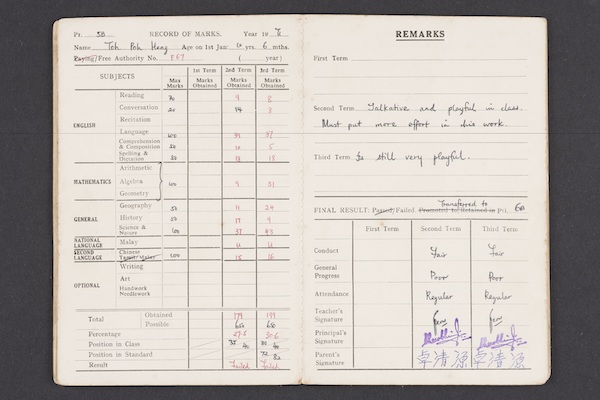 Pr. 5B RECORD OF MARKS. Year 19
Name Toh Poh Heng Age on 1st Jan: 10 yrs. 6 mths.
Paying/Free Authority No. ( year)
SUBJECTS
Max Marks
1st Term Marks Obtained
2nd Term Marks Obtained
3rd Term Marks Obtained
ENGLISH
Reading 9 8
Conversation 14 8
Recitation
Language 100
Comprehension & Composition
Spelling & Dictation
MATHEMATICS
Arithmetic
Algebra 100 9 31
Geometry
GENERAL
Geography 50 11 24
History 50 9
Science & Nature 100 43
NATIONAL LANGUAGE
Malay
SECOND LANGUAGE
Chinese
Tamil/Malay 100 15 16
OPTIONAL
Writing
Art
Handwork
Needlework
Total
Obtained 179 199
Possible 650 650
Percentage 27.5 30.6
Position in Class
Position in Standard
Result Failed Failed
REMARKS
First Term
Second Term Talkative and playful in class.
Must put more effort in his work.
Third Term Is still very playful.
Transferred to
FINAL RESULT: Passed/Failed Promoted to/Retained in Pri. 6B
First Term Second Term Third Term
Conduct Fair Fair
General Progress Poor Poor
Attendance Regular Regular
Teacher's Signature
Principal's Signature
Parent's Signature 卓清源 卓清源